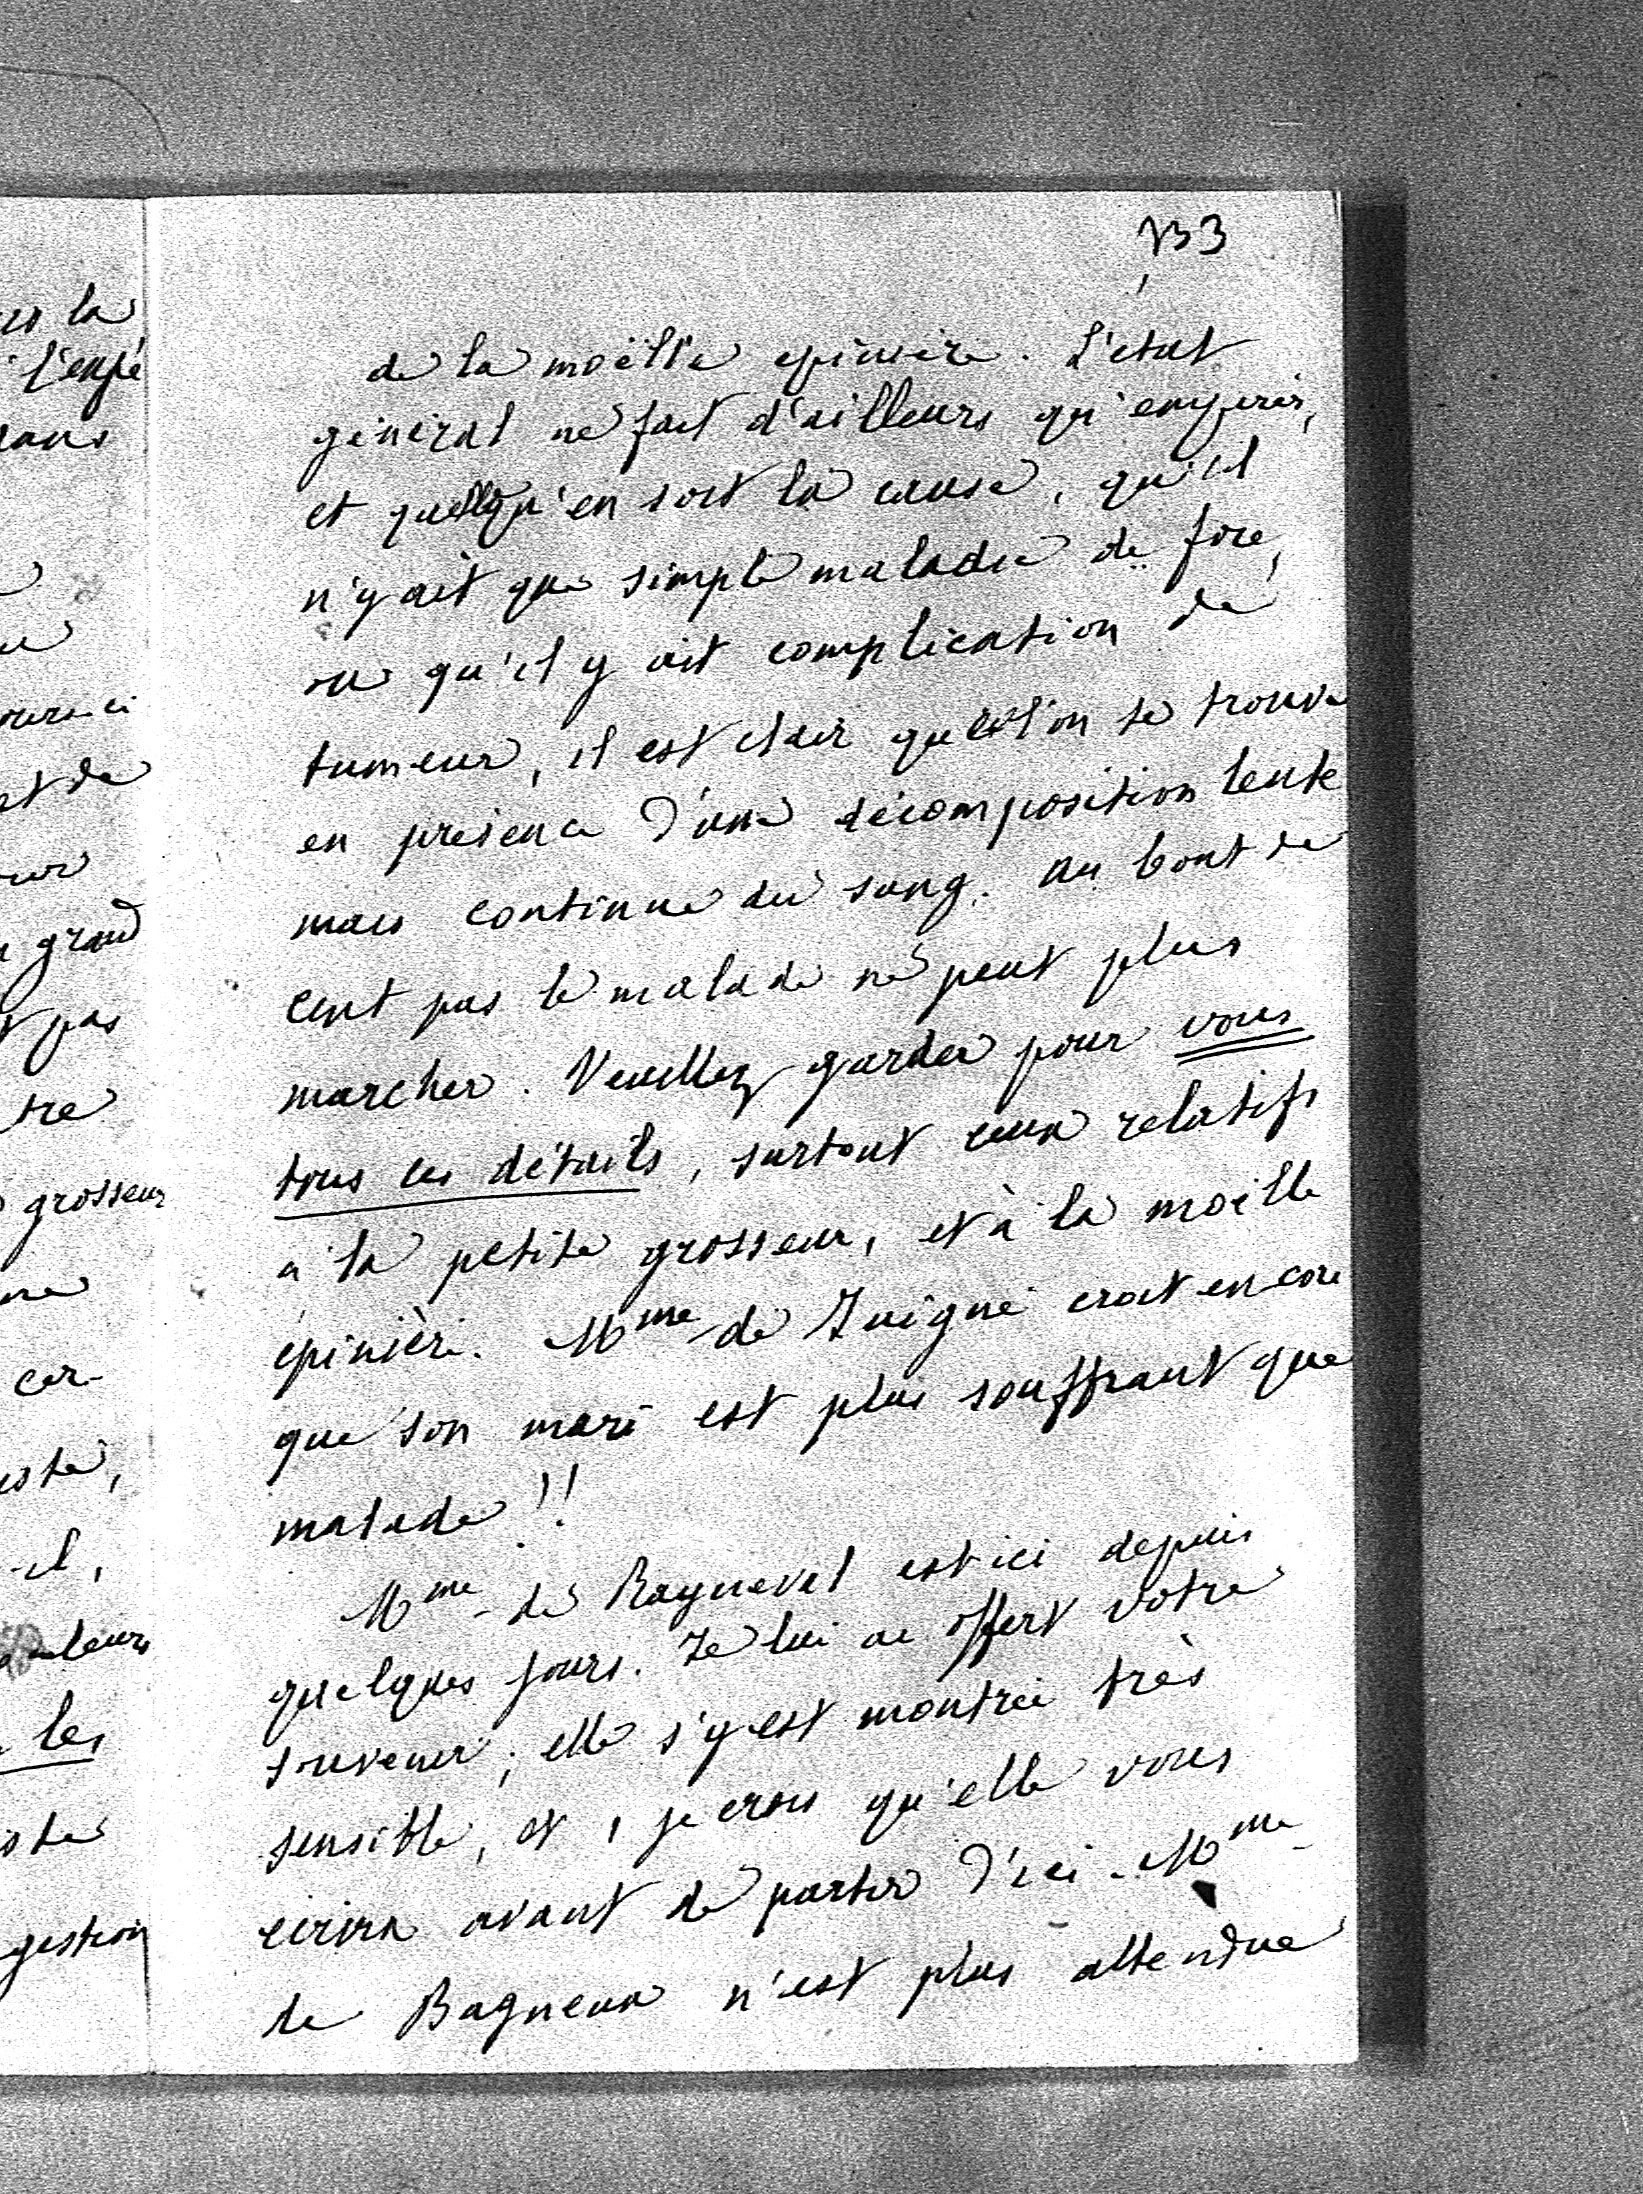 de la moëlle epinière. L'etat
général ne fait d'ailleurs qu'empirer,
et quelqu'en soit la cause, qu'il
n'y ait que simple maladie de foie,
ou qu'il y ait complication de
tumeur, il est clair que l'on se trouve
en présence d'une décomposition lente
mais continue du sang. Au bout de
cent pas le malade ne peut plus
marcher. Veuillez garder pour vous
tous ces détails, surtout ceux relatifs
à la petite grosseur, et à la moëlle
épinière. Mme de Juigné croit encore
que son mari est plus souffrant que
malade!!
Mme de Raynevel est ici depuis
quelques jours. Je lui ai offert votre
souvenir; elle s'y est montrée très
sensible, et, je crois qu'elle vous
écrira avant de partir d'ici. Mme
de Bagneux n'est plus attendue
la
grand
pas
tre
grosseur
cer-
il,
leurs
les
gestion